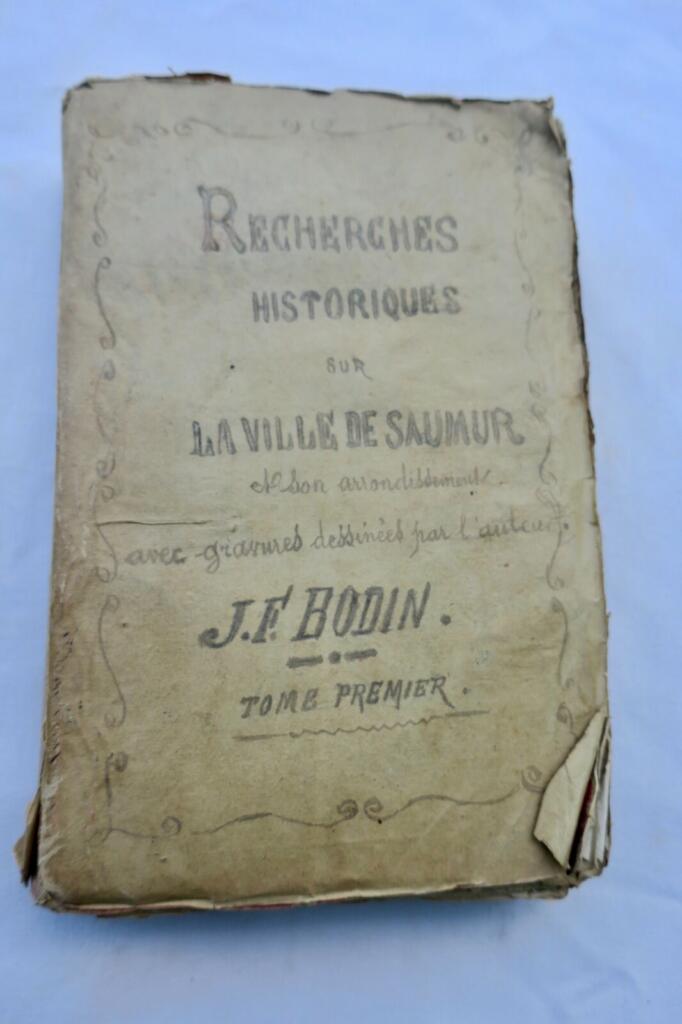 RECHERCHES
HISTORIQUES
SUR
LA VILLE DE SAUMUR
et son arrondissement.
avec gravures dessinées par l'auteur.
J.F. BODIN.
TOME PREMIER.